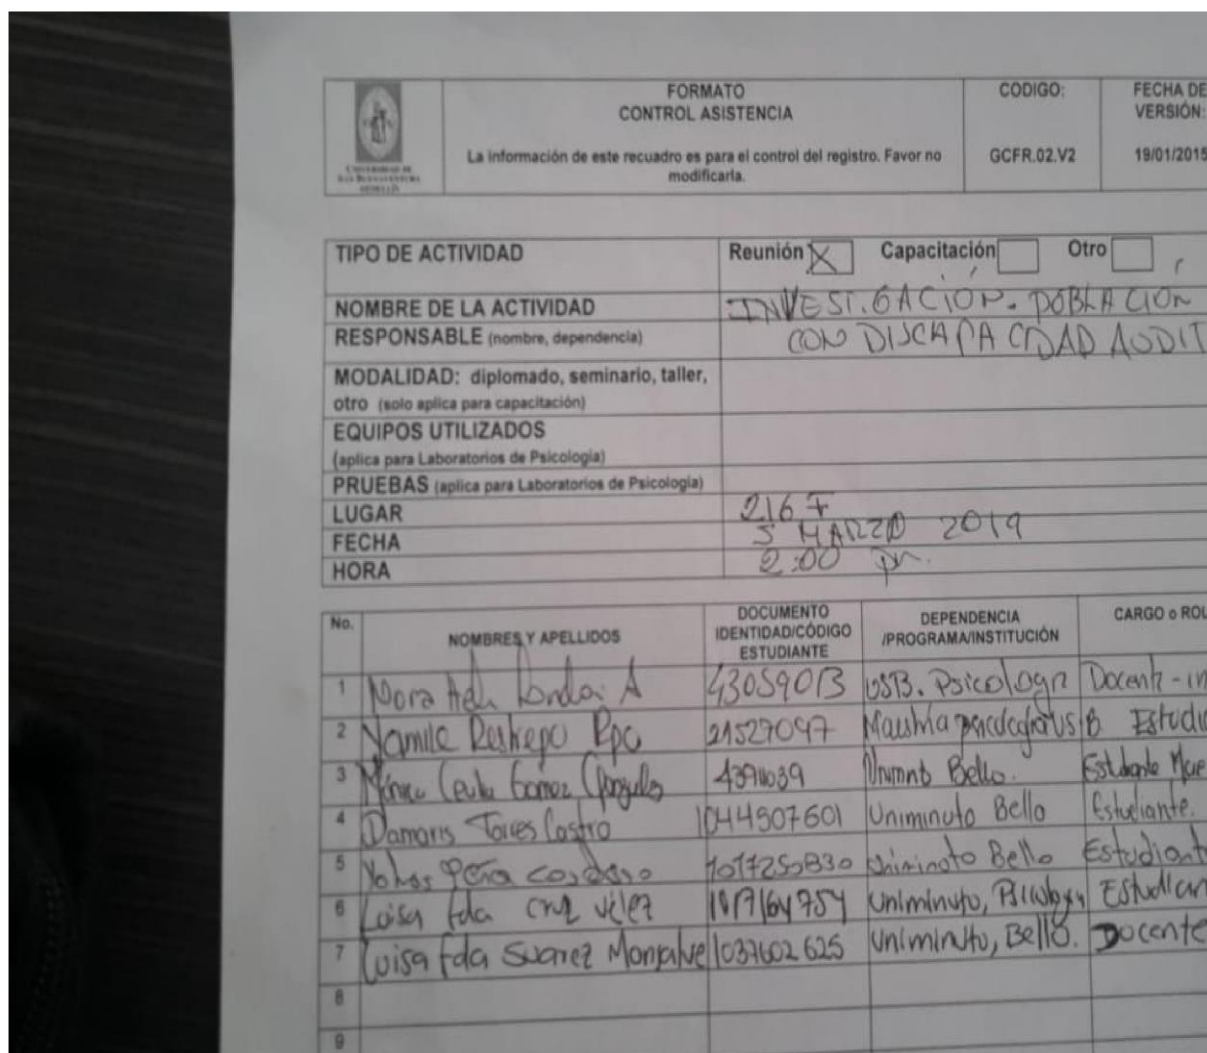 FORMATO
CONTROL ASISTENCIA
La información de este recuadro es para el control del registro. Favor no
modificarla.
CODIGO:
GCFR.02.V2
FECHA DE
VERSIÓN:
19/01/2015
UNIVERSIDAD DE
SAN BUENAVENTURA
MEDELLÍN
TIPO DE ACTIVIDAD Reunión X Capacitación Otro
NOMBRE DE LA ACTIVIDAD INVESTIGACIÓN. POBLACIÓN
RESPONSABLE (nombre, dependencia) CON DISCAPACIDAD AUDIT
MODALIDAD: diplomado, seminario, taller,
otro (solo aplica para capacitación)
EQUIPOS UTILIZADOS
(aplica para Laboratorios de Psicología)
PRUEBAS (aplica para Laboratorios de Psicología)
LUGAR 216 F
FECHA 5 MARZO 2019
HORA 2:00 pm.
No. NOMBRES Y APELLIDOS DOCUMENTO IDENTIDAD/CÓDIGO ESTUDIANTE DEPENDENCIA /PROGRAMA/INSTITUCIÓN CARGO o ROL
1 Nora A 43059013 USB. Psicología Docente - in
2 Yamile Restrepo 21527097 USB Estudia
3 Gómez Bello. Estudiante
4 Damaris Torres Castro 1044507601 Uniminuto Bello Estudiante.
5 Peña 1017250830 Uniminuto Bello Estudiant
6 Luisa fda cruz vélez Uniminuto, Estudian
7 Luisa fda Suarez Monsalve 1037602625 Uniminuto, Bello. Docente
8
9